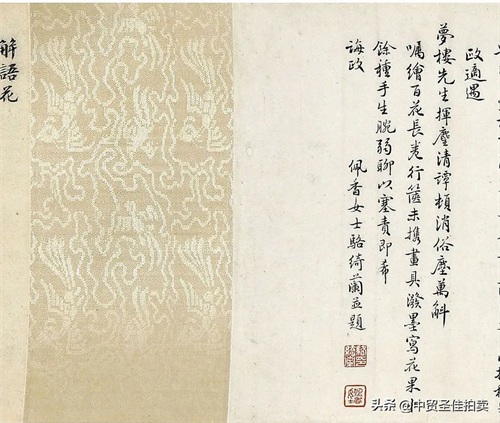 政適遇
夢樓先生揮麈清譚頓消俗塵萬斛
囑繪百花長卷行篋未攜畫具潑墨寫花果
餘種手生腕弱聊以塞責即希
誨政
佩香女士駱綺蘭並題
解語花
头条@中贸圣佳拍卖